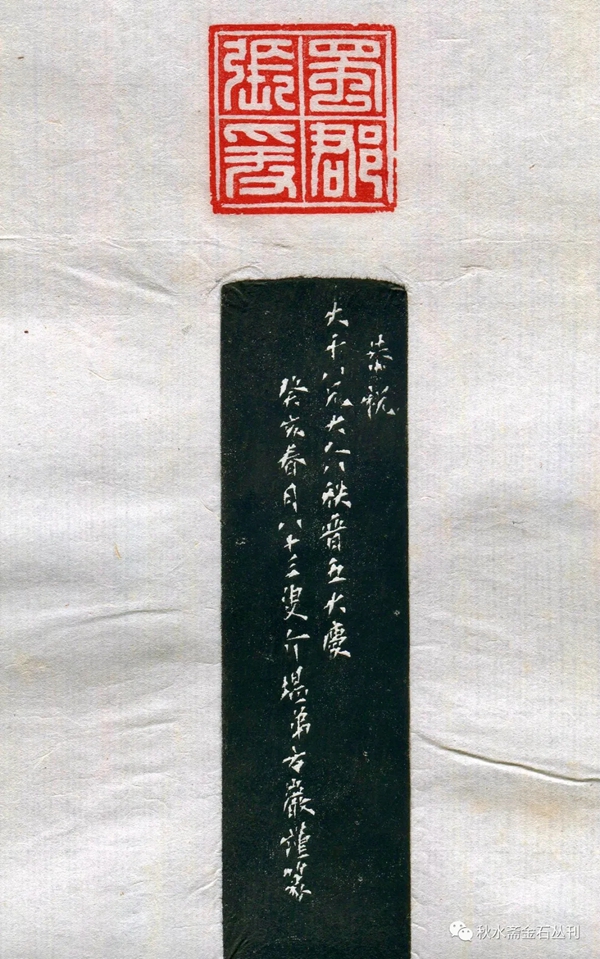 蜀郡
張爰
恭祝
大千八兄大人八秩晋五大慶
癸亥春月八十三叟介堪弟方巖謹篆
秋水斋金石丛刊